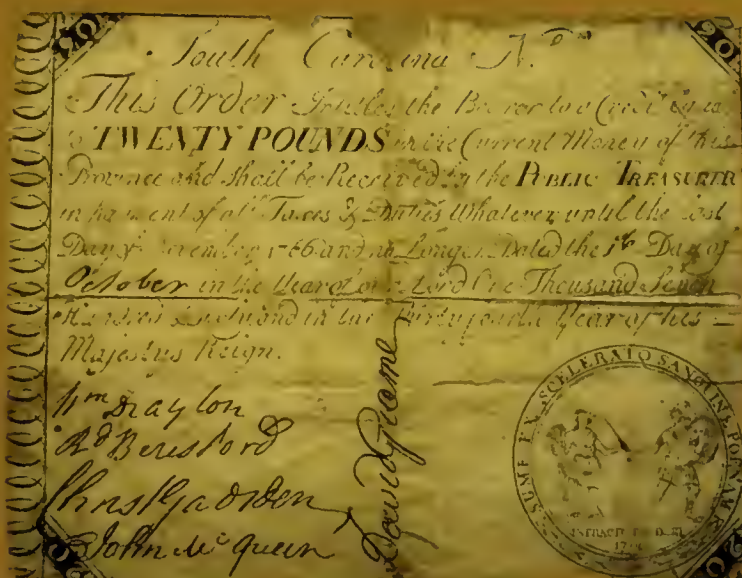 20 20
South Carolina N.
This Order Intitles the Bearer to a Credit equal
to TWENTY POUNDS in the Current Money of this
Province and shall be Received by the PUBLIC TREASURER
in payment of all Taxes & Duties Whatever until the last
Day of November 1766 and no Longer. Dated the 1st Day of
October in the Year of our Lord One Thousand Seven
Hundred Sixty and in the Thirty fourth Year of his
Majestys Reign.
Wm Drayton
Rd Beresford
Christ Gadsden
John McQueen
David Graeme
SUME EX SCELERATO SANGUINE POENAM
20 20